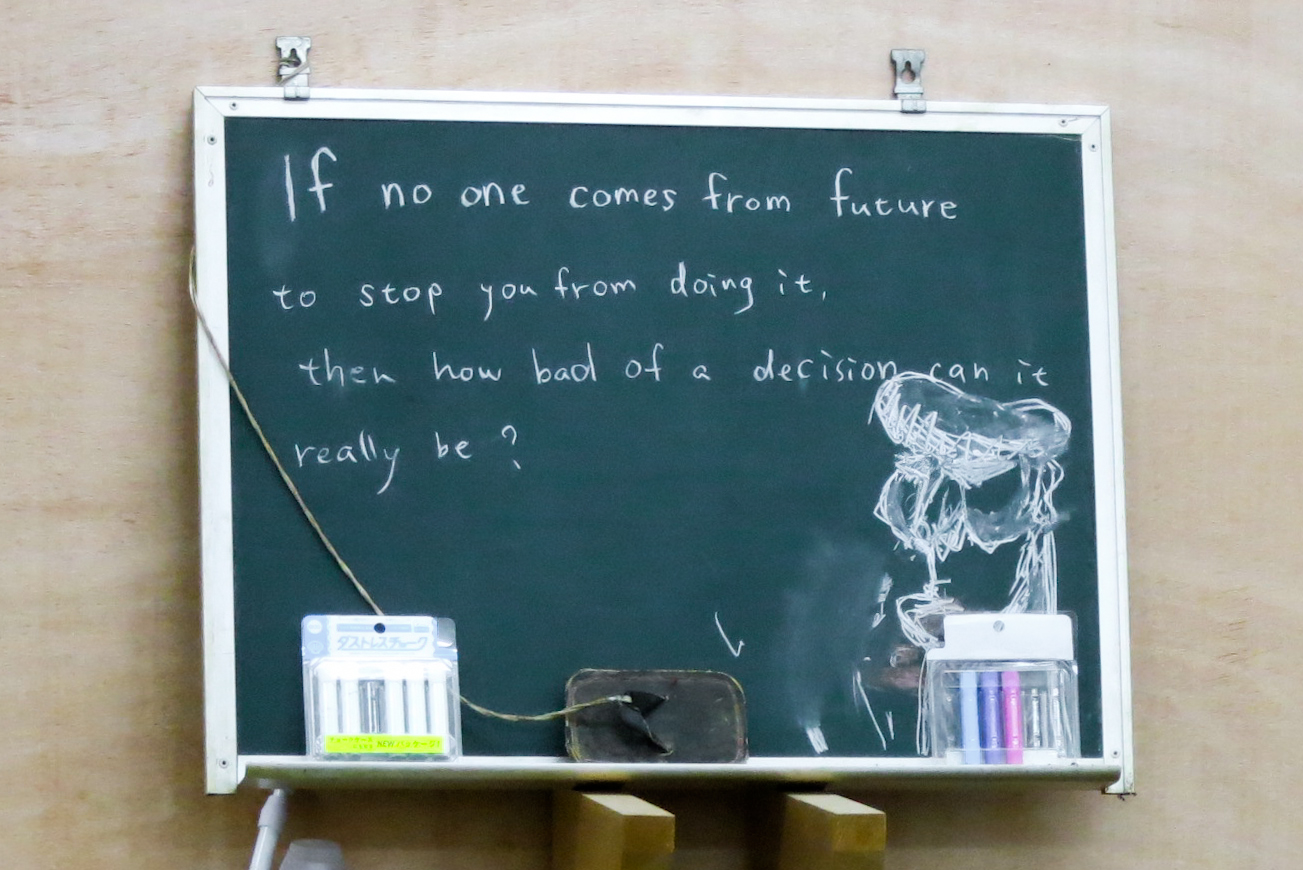 If no one comes from future
to stop you from doing it,
then how bad of a decision can it
really be ?
ダストレスチョーク
NEWパッケージ!